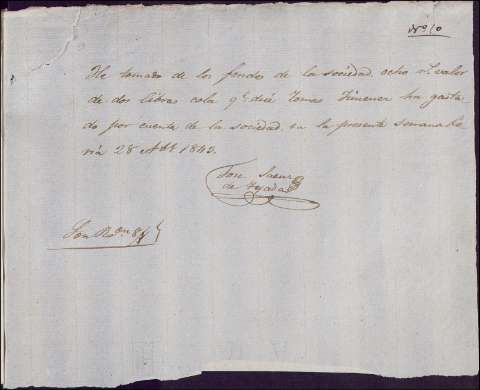 Nº 10
He tomado de los fondos de la sociedad ocho r.s valor
de dos libras cola q.e dice Tomas Jimenez ha gasta
do por cuenta de la sociedad en la presente semana So
ria 28 de 1843.
Jose Saenz
de Tejada
Son R.s on 8